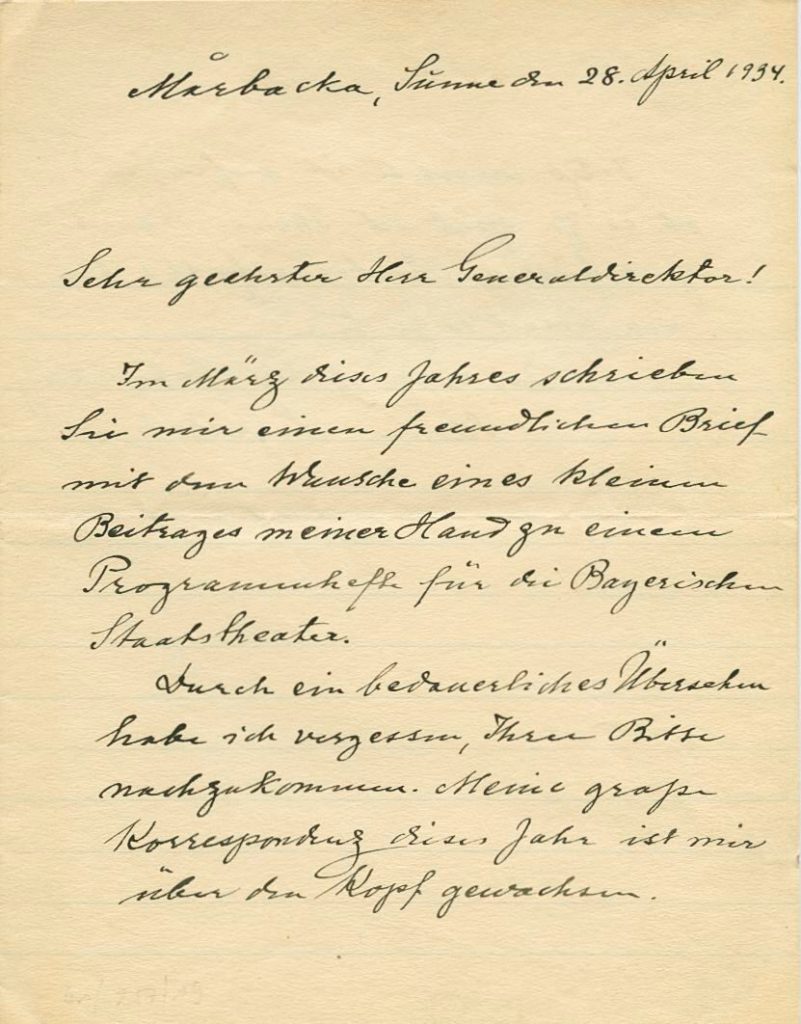 Mårbacka, Sunne den 28. April 1934.
Sehr geehrter Herr Generaldirektor!
Im März dieses Jahres schrieben
Sie mir einen freundlichen Brief
mit dem Wunsche eines kleinen
Beitrages meiner Hand zu einem
Programmhefte für die Bayerischen
Staatstheater.
Durch ein bedauerliches Übersehen
habe ich vergessen, Ihrer Bitte
nachzukommen. Meine große
Korrespondenz dieses Jahr ist mir
über den Kopf gewachsen.